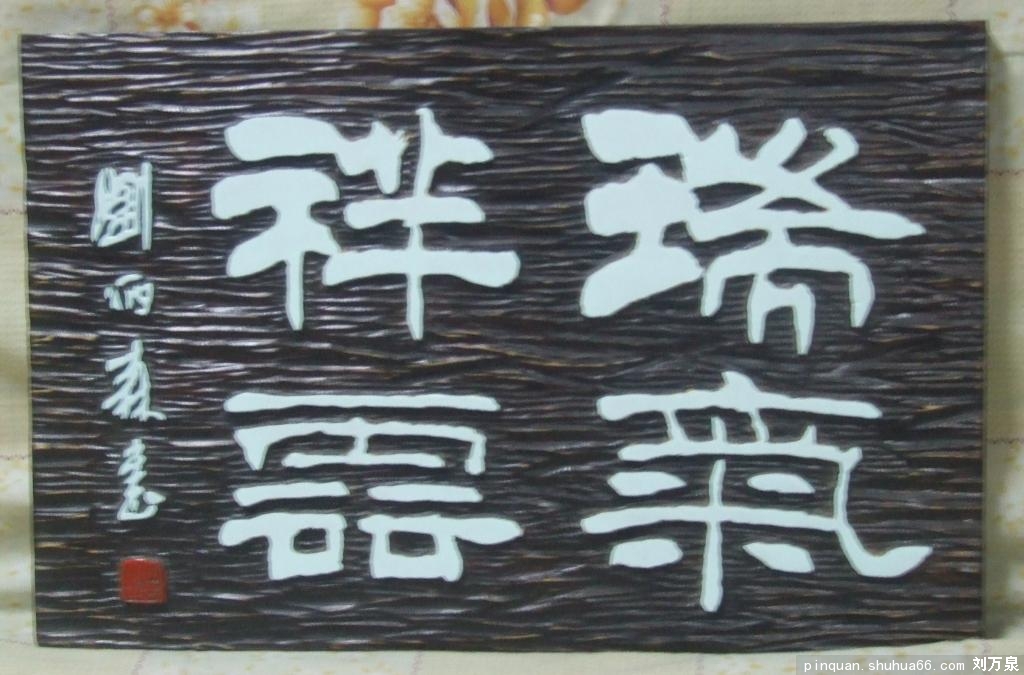 瑞氣
祥雲
劉炳森書
pinquan.shuhua66.com 刘万泉